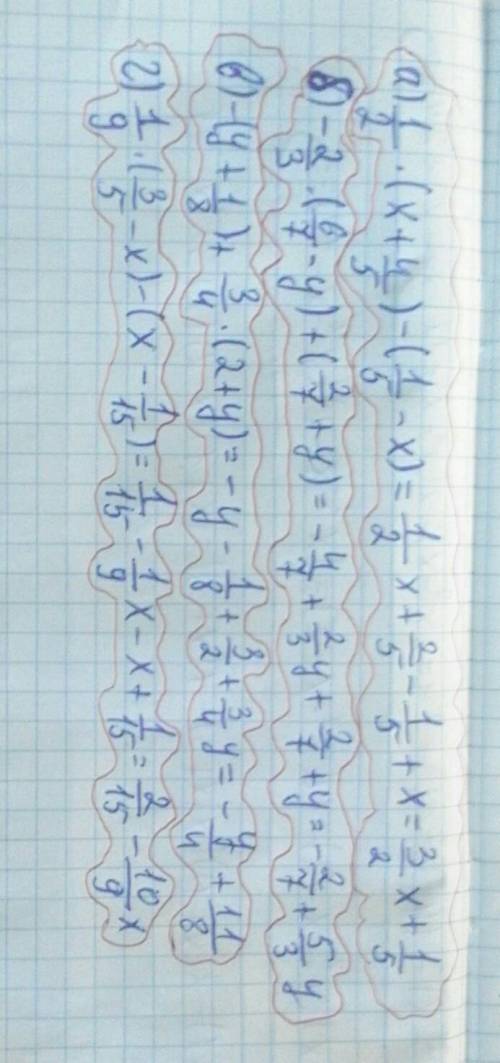 а) 1/2 · (x + 4/5) - (1/5 - x) = 1/2 x + 2/5 - 1/5 + x = 3/2 x + 1/5
б) - 2/3 · (6/7 - y) + (2/7 + y) = - 4/7 + 2/3 y + 2/7 + y = - 2/7 + 5/3 y
в) -(y + 1/8) + 3/4 · (2 + y) = - y - 1/8 + 3/2 + 3/4 y = - y/4 + 11/8
г) 1/9 · (3/5 - x) - (x - 1/15) = 1/15 - 1/9 x - x + 1/15 = 2/15 - 10/9 x